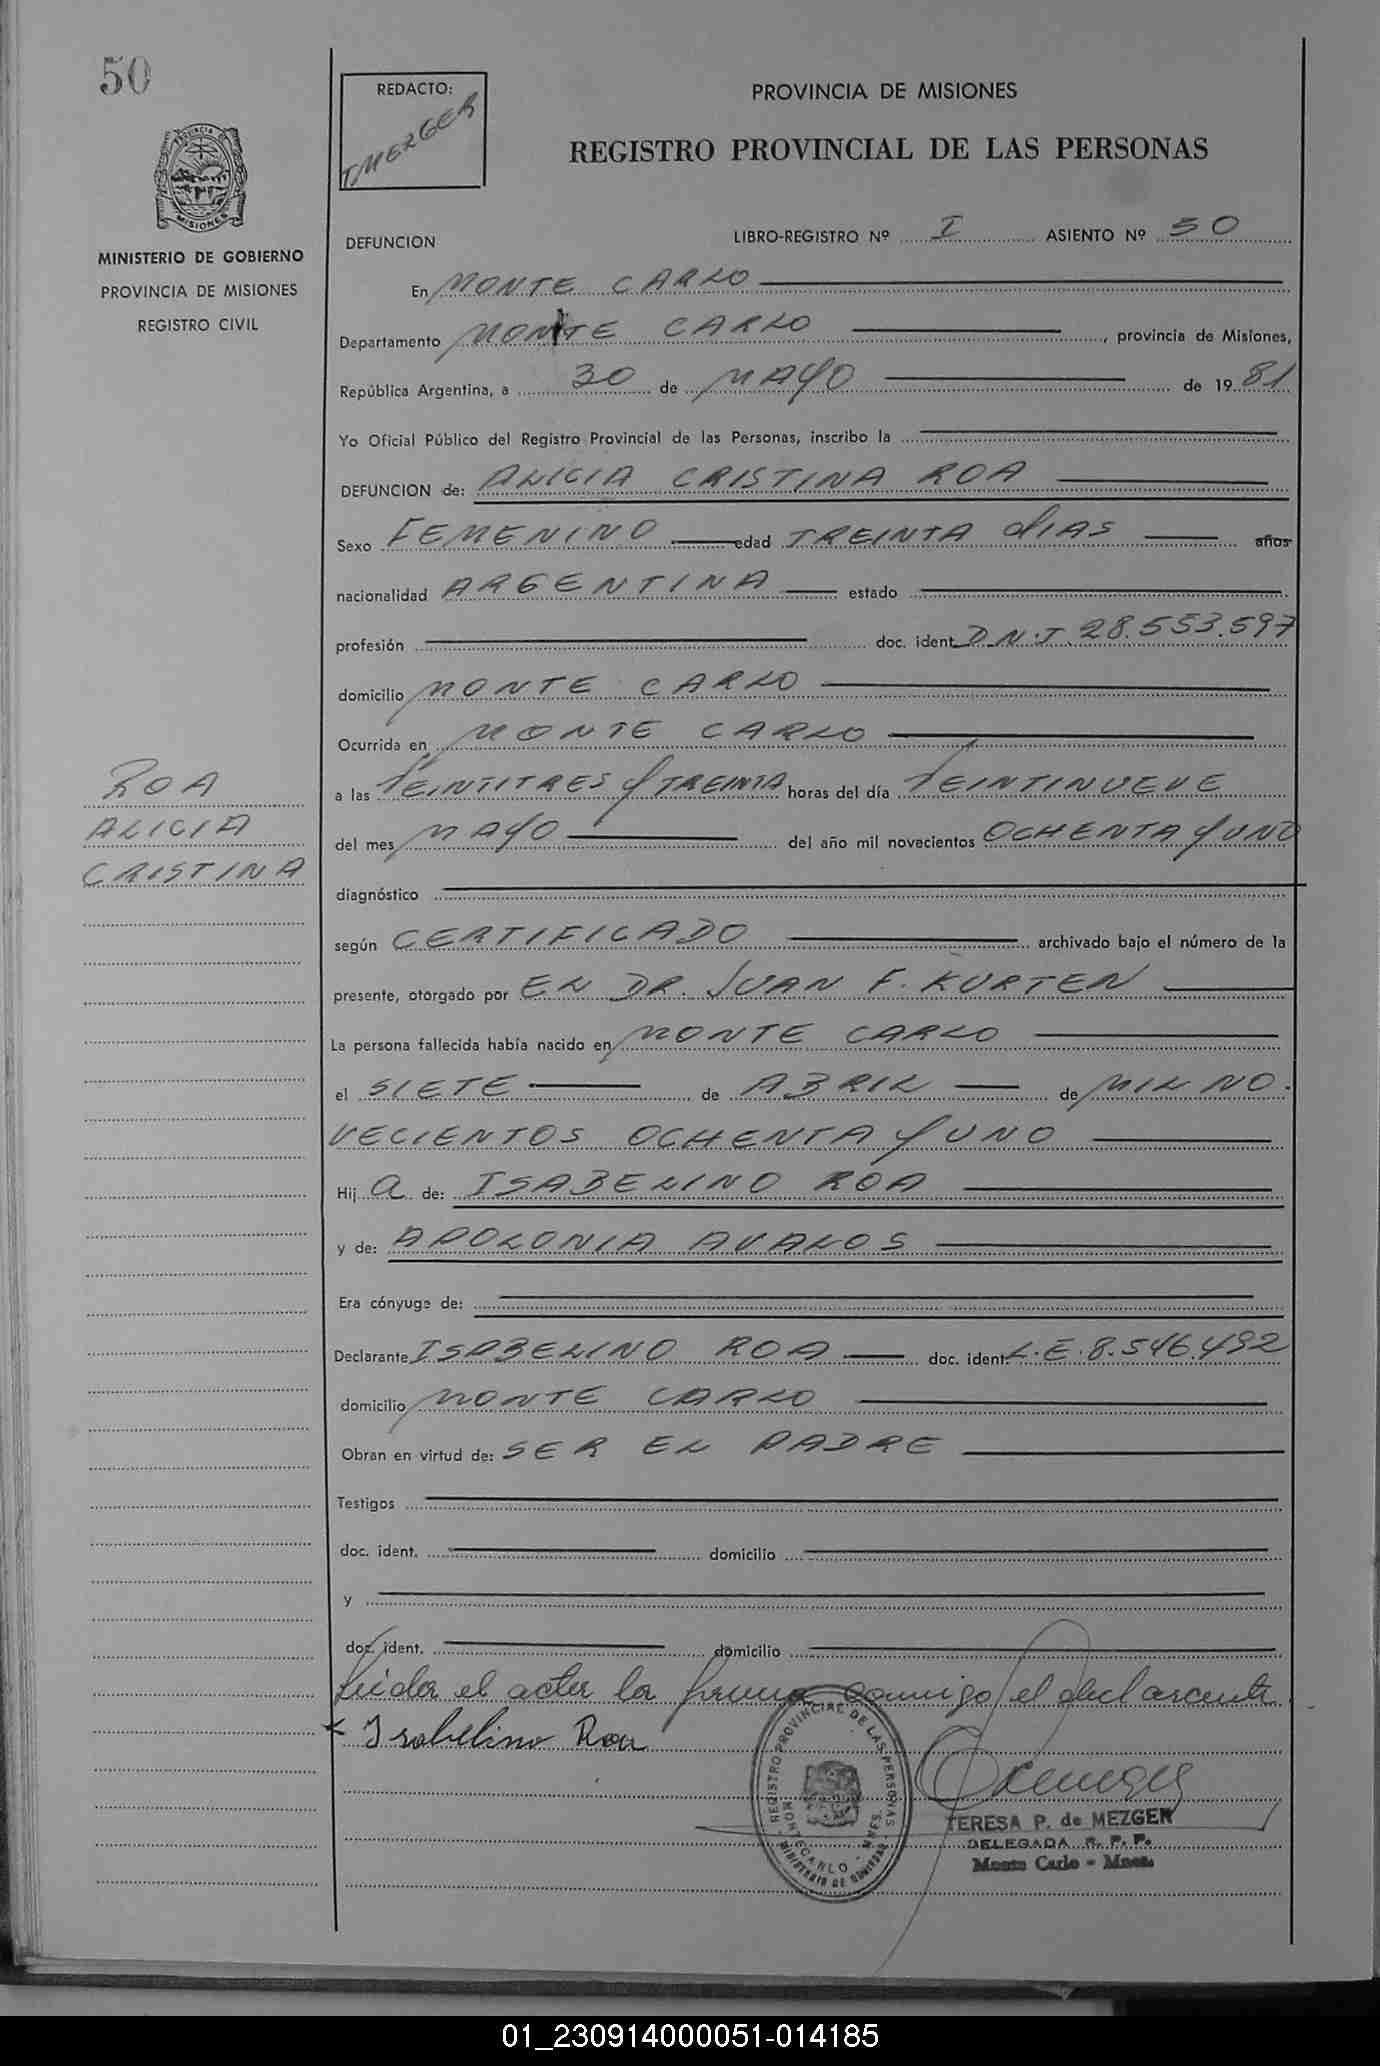 50
REDACTO:
T MEZGER
PROVINCIA DE MISIONES
REGISTRO PROVINCIAL DE LAS PERSONAS
PROVINCIA DE
MISIONES
MINISTERIO DE GOBIERNO
PROVINCIA DE MISIONES
REGISTRO CIVIL
DEFUNCION LIBRO-REGISTRO Nº I ASIENTO Nº 50
En MONTE CARLO
Departamento MONTE CARLO, provincia de Misiones,
República Argentina, a 30 de MAYO de 1981
Yo Oficial Público del Registro Provincial de las Personas, inscribo la
DEFUNCION de: ALICIA CRISTINA ROA
Sexo FEMENINO edad TREINTA DIAS años
nacionalidad ARGENTINA estado
profesión doc. ident. D.N.I. 28.553.597
domicilio MONTE CARLO
Ocurrida en MONTE CARLO
a las VEINTITRES Y TREINTA horas del día VEINTINUEVE
del mes MAYO del año mil novecientos OCHENTA Y UNO
diagnóstico
según CERTIFICADO archivado bajo el número de la
presente, otorgado por EL DR. JUAN F. KURTEN
La persona fallecida había nacido en MONTE CARLO
el SIETE de ABRIL de MIL NO-
VECIENTOS OCHENTA Y UNO
Hij a de: ISABELINO ROA
y de: APOLONIA AVALOS
Era cónyuge de:
Declarante ISABELINO ROA doc. ident. L.E. 8.546.492
domicilio MONTE CARLO
Obran en virtud de: SER EL PADRE
Testigos
doc. ident. domicilio
y
doc. ident. domicilio
Leída el acta la firma conmigo el declarante.
x Isabelino Roa
ROA
ALICIA
CRISTINA
REGISTRO PROVINCIAL DE LAS PERSONAS
MONTECARLO - MNES.
MINISTERIO DE GOBIERNO
TERESA P. de MEZGER
DELEGADA R. P. P.
Monte Carlo - Mnes.
01_230914000051-014185